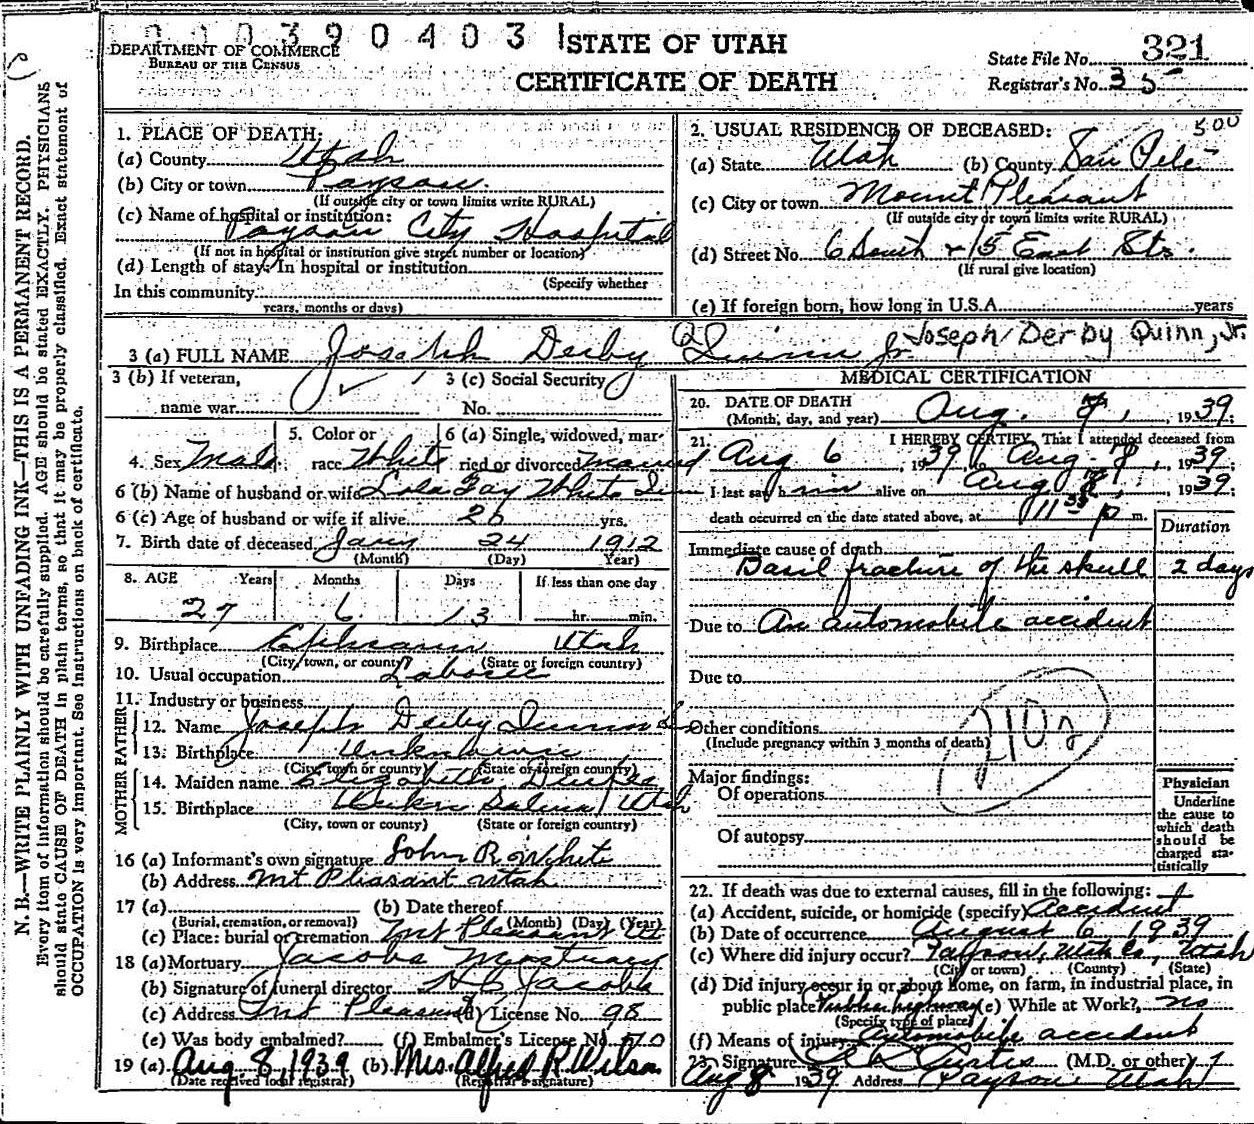 000390403 1
DEPARTMENT OF COMMERCE
BUREAU OF THE CENSUS
STATE OF UTAH
CERTIFICATE OF DEATH
State File No. 321
Registrar's No. 35
N. B.—WRITE PLAINLY WITH UNFADING INK—THIS IS A PERMANENT RECORD.
Every item of information should be carefully supplied. AGE should be stated EXACTLY. PHYSICIANS
should state CAUSE OF DEATH in plain terms, so that it may be properly classified. Exact statement of
OCCUPATION is very important. See instructions on back of certificate.
1. PLACE OF DEATH:
(a) County Utah
(b) City or town Payson.
(If outside city or town limits write RURAL)
(c) Name of hospital or institution:
Payson City Hospital
(If not in hospital or institution give street number or location)
(d) Length of stay: In hospital or institution
(Specify whether
In this community
years, months or days)
500
2. USUAL RESIDENCE OF DECEASED:
(a) State Utah (b) County San Pete
(c) City or town Mount Pleasant
(If outside city or town limits write RURAL)
(d) Street No. 6 South & 5 East Sts.
(If rural give location)
(e) If foreign born, how long in U.S.A. years
3 (a) FULL NAME Joseph Derby Quinn Jr Joseph Derby Quinn, Jr.
3 (b) If veteran,
name war
3 (c) Social Security
No.
4. Sex Male
5. Color or
race White
6 (a) Single, widowed, mar-
ried or divorced Married
6 (b) Name of husband or wife Lola Fay White Quinn
6 (c) Age of husband or wife if alive 26 yrs.
7. Birth date of deceased Jany 24 1912
(Month) (Day) Year)
8. AGE Years Months Days If less than one day
27 6 13 hr. min.
9. Birthplace Ephraim Utah
(City, town, or county) (State or foreign country)
10. Usual occupation Laborer
11. Industry or business
MOTHER FATHER
12. Name Joseph Derby Quinn Sr
13. Birthplace Unknown
(City, town or county) (State or foreign country)
14. Maiden name Elizabeth
15. Birthplace Salina, Utah
(City, town or county) (State or foreign country)
16 (a) Informant's own signature John R White
(b) Address Mt Pleasant Utah
17 (a) (b) Date thereof
(Burial, cremation, or removal) (Month) (Day) (Year)
(c) Place: burial or cremation Mt Pleasant Ut
18 (a) Mortuary Jacobs Mortuary
(b) Signature of funeral director Jacobs
(c) Address Mt Pleasant (d) License No. 98
(e) Was body embalmed? (f) Embalmer's License No.
19 (a) Aug 8, 1939 (b) Mrs. Alfred R. Wilson
(Date received local registrar) (Registrar's signature)
MEDICAL CERTIFICATION
20. DATE OF DEATH
(Month, day, and year) Aug. 7, 1939.
21. I HEREBY CERTIFY, That I attended deceased from
Aug 6, 1939, to Aug. 7, 1939
I last saw him alive on Aug 7, 1939.
death occurred on the date stated above, at 11 P m.
Duration
Immediate cause of death
Basil fracture of the skull 2 days
Due to An automobile accident
Due to
Other conditions
(Include pregnancy within 3 months of death)
Major findings:
Of operations
Of autopsy
Physician
Underline
the cause to
which death
should be
charged sta-
tistically
22. If death was due to external causes, fill in the following:
(a) Accident, suicide, or homicide (specify) Accident
(b) Date of occurrence August 6 1939
(c) Where did injury occur? Payson, Utah Co, Utah
(City or town) (County) (State)
(d) Did injury occur in or about home, on farm, in industrial place, in
public place Public highway (e) While at Work? no
(Specify type of place)
(f) Means of injury Automobile accident
23. Signature Curtis (M.D. or other)
Aug 8 1939 Address Payson Utah